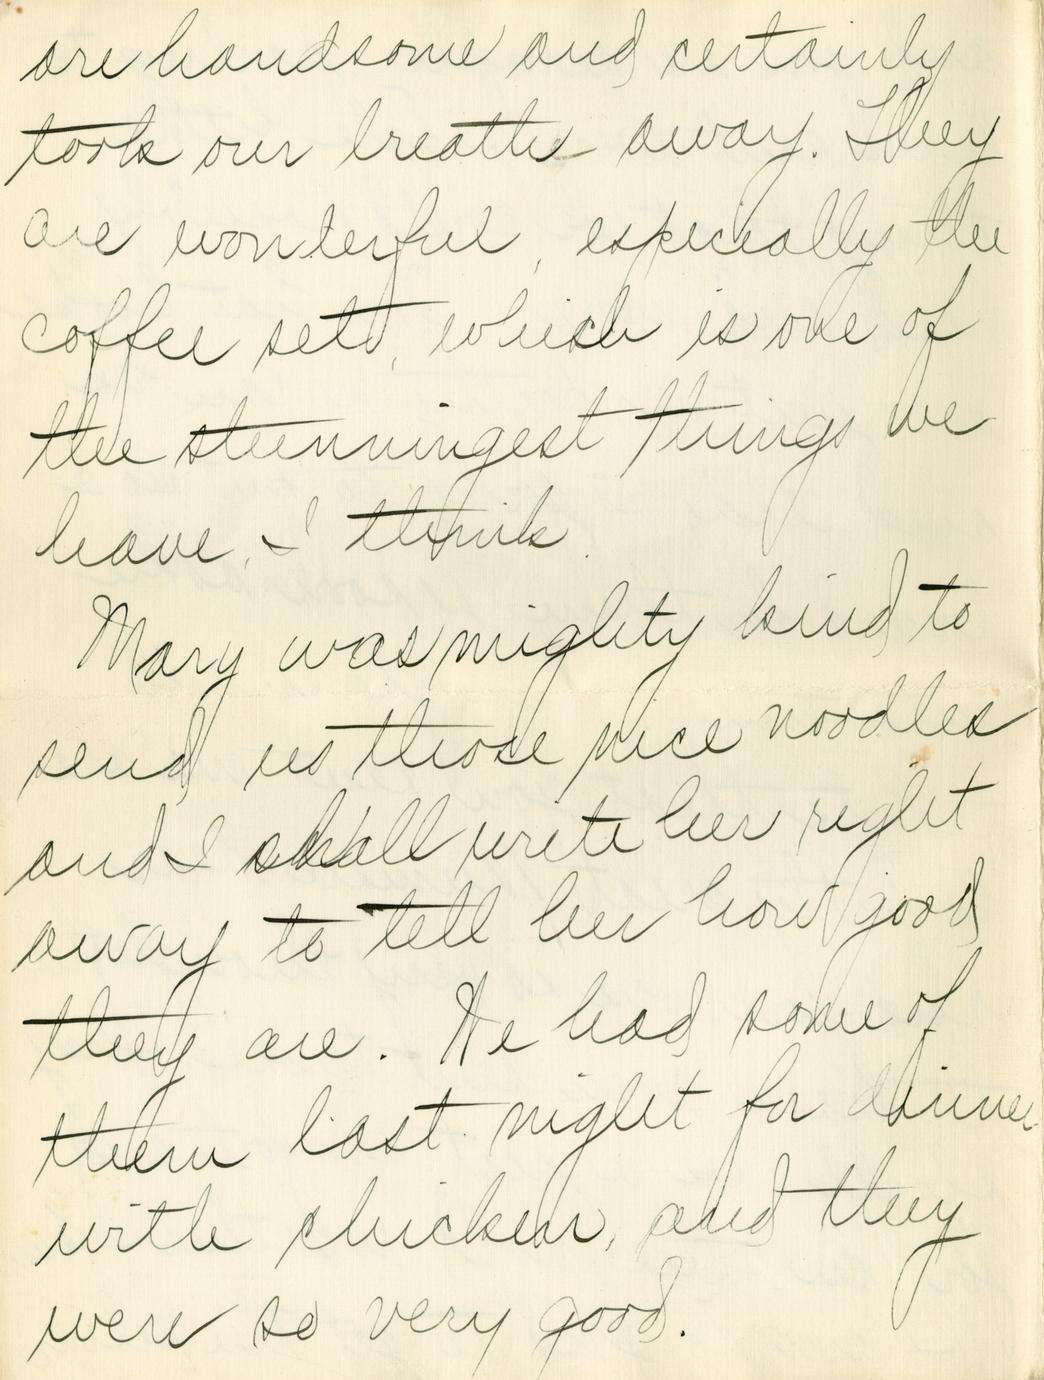 are handsome and certainly
took our breath away. They
are wonderful, especially the
coffee set, which is one of
the stunningest things we
have, I think.
Mary was mighty kind to
send us those nice noodles
and I shall write her right
away to tell her how good
they are. We had some of
them last night for dinner
with chicken, and they
were so very good.